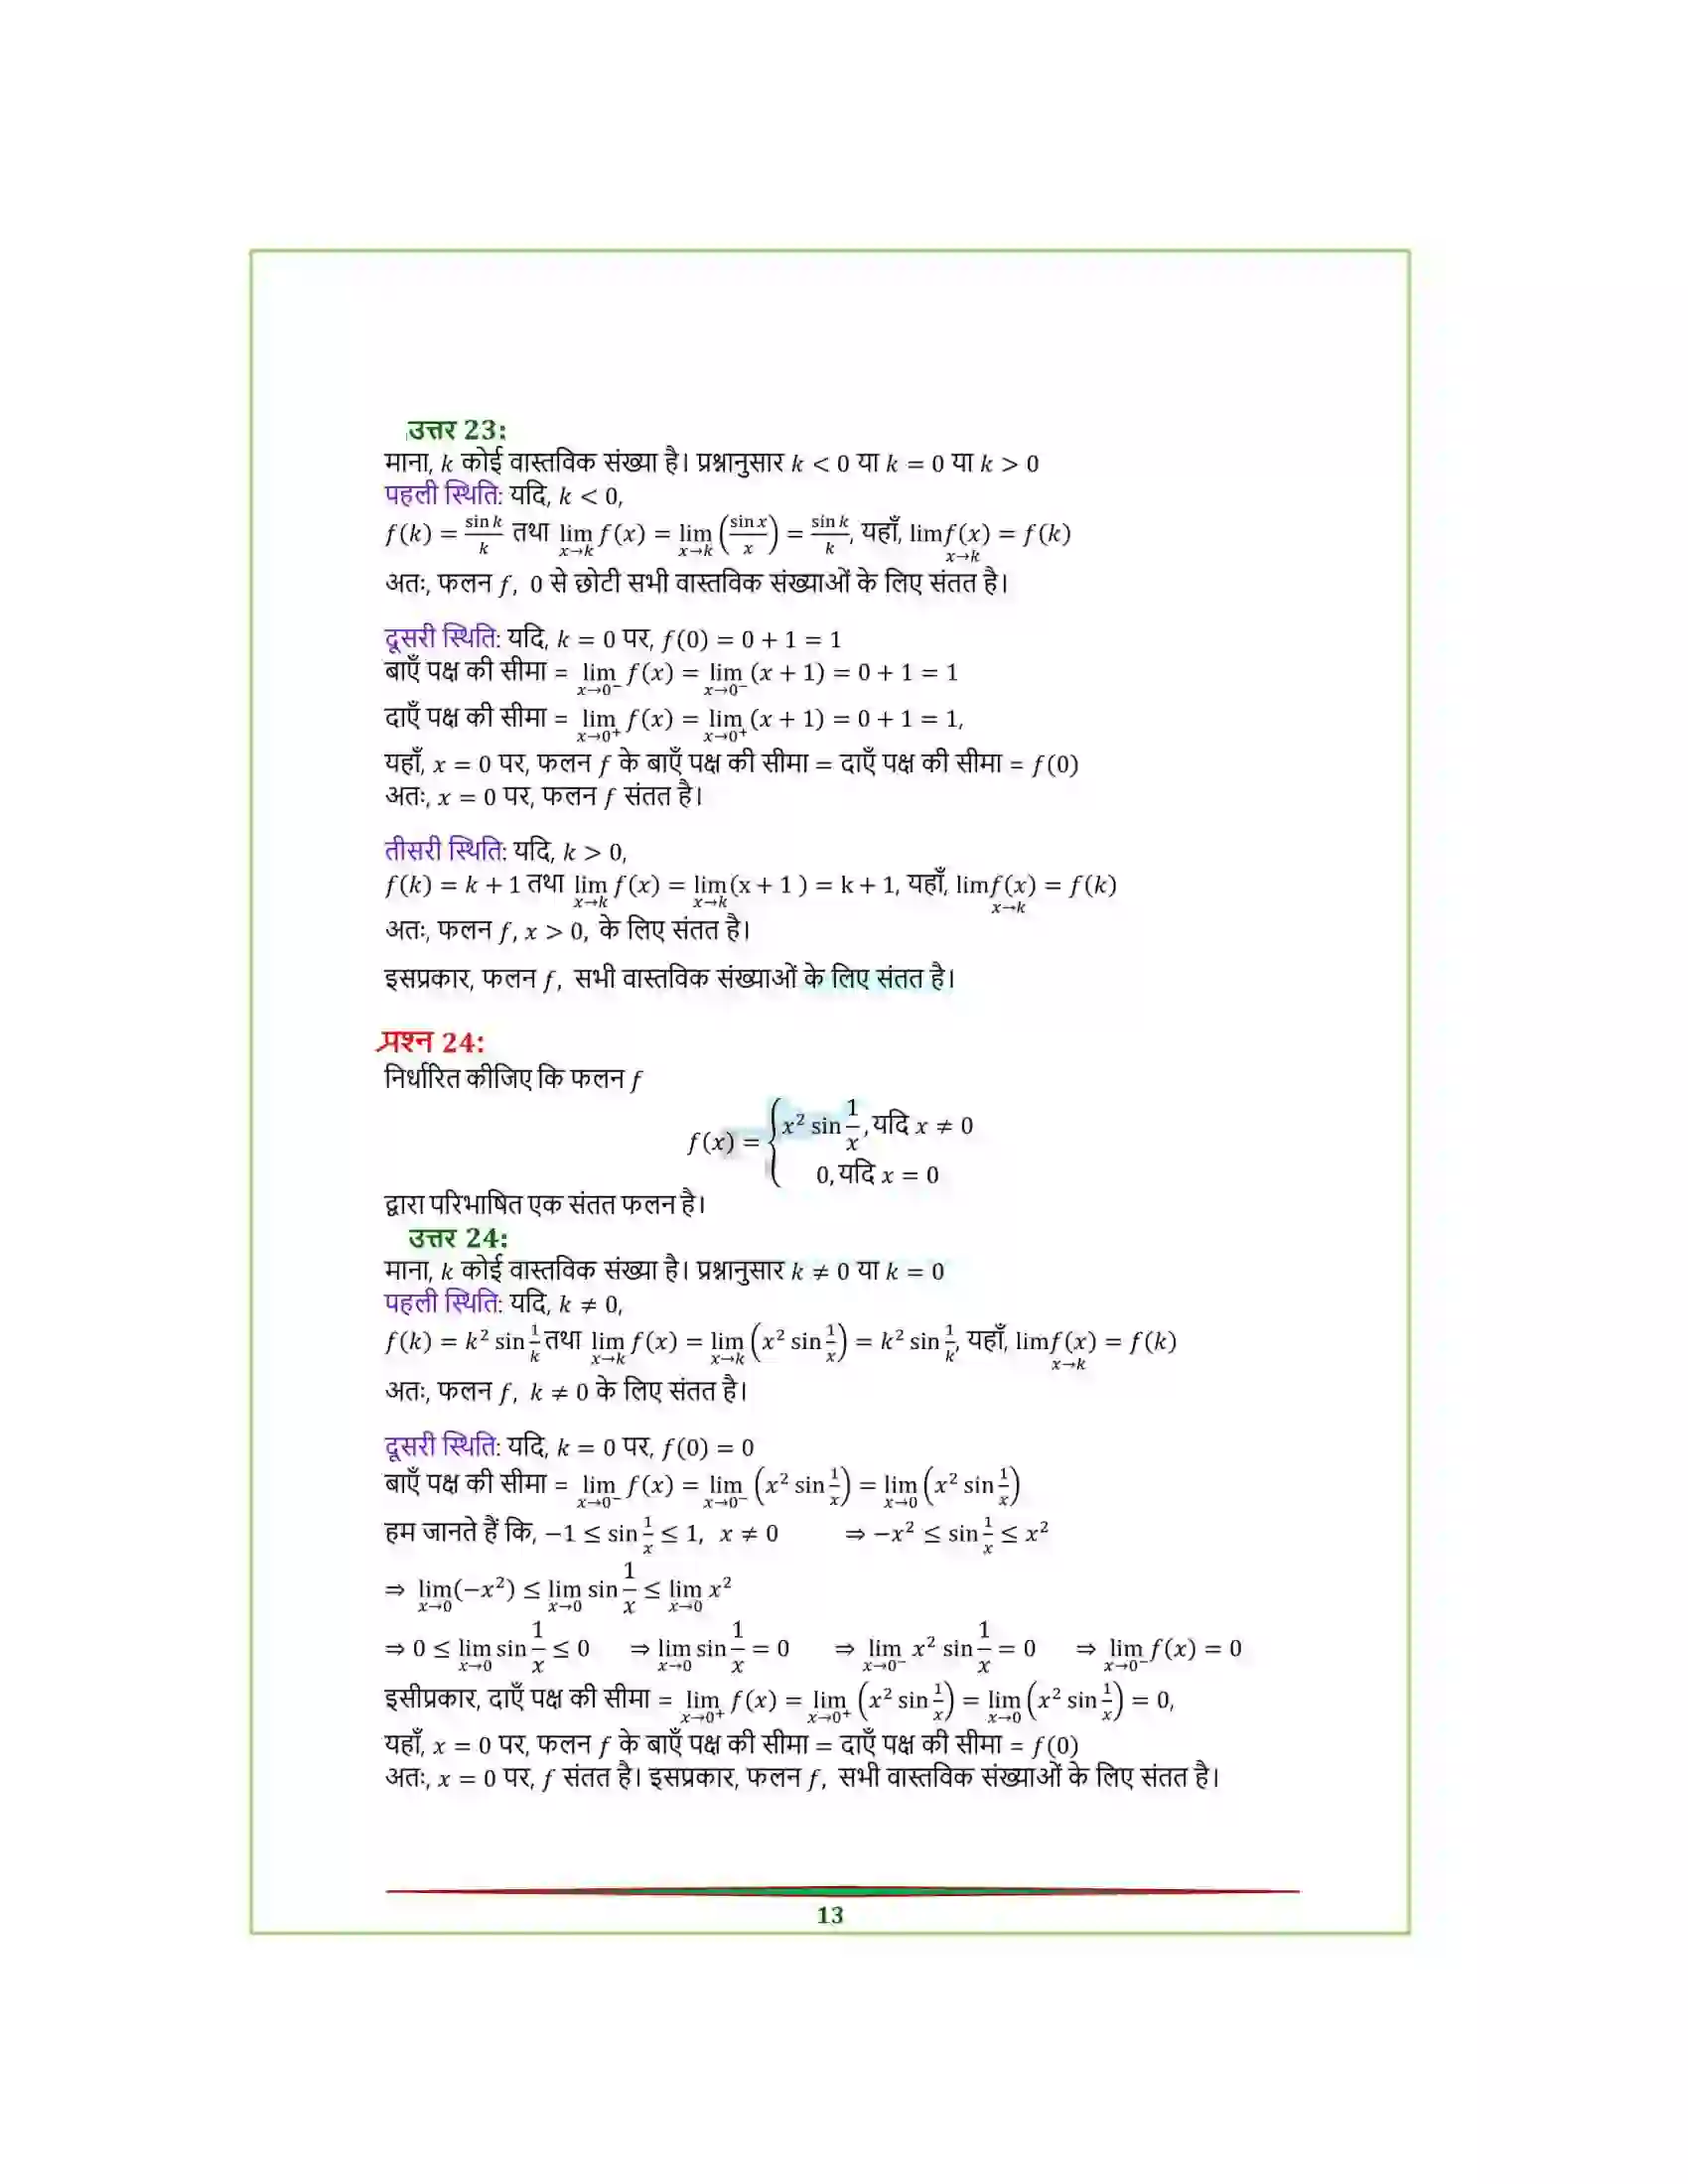 उत्तर 23:
माना, k कोई वास्तविक संख्या है। प्रश्नानुसार k < 0 या k = 0 या k > 0
पहली स्थिति: यदि, k < 0,
f(k) = sin k/k तथा lim x→k f(x) = lim x→k (sin x/x) = sin k/k, यहाँ, lim x→k f(x) = f(k)
अतः, फलन f, 0 से छोटी सभी वास्तविक संख्याओं के लिए संतत है।
दूसरी स्थिति: यदि, k = 0 पर, f(0) = 0 + 1 = 1
बाएँ पक्ष की सीमा = lim x→0⁻ f(x) = lim x→0⁻ (x + 1) = 0 + 1 = 1
दाएँ पक्ष की सीमा = lim x→0⁺ f(x) = lim x→0⁺ (x + 1) = 0 + 1 = 1,
यहाँ, x = 0 पर, फलन f के बाएँ पक्ष की सीमा = दाएँ पक्ष की सीमा = f(0)
अतः, x = 0 पर, फलन f संतत है।
तीसरी स्थिति: यदि, k > 0,
f(k) = k + 1 तथा lim x→k f(x) = lim x→k (x + 1 ) = k + 1, यहाँ, lim x→k f(x) = f(k)
अतः, फलन f, x > 0, के लिए संतत है।
इसप्रकार, फलन f, सभी वास्तविक संख्याओं के लिए संतत है।
प्रश्न 24:
निर्धारित कीजिए कि फलन f
f(x) = { x² sin 1/x, यदि x ≠ 0
0, यदि x = 0
द्वारा परिभाषित एक संतत फलन है।
उत्तर 24:
माना, k कोई वास्तविक संख्या है। प्रश्नानुसार k ≠ 0 या k = 0
पहली स्थिति: यदि, k ≠ 0,
f(k) = k² sin 1/k तथा lim x→k f(x) = lim x→k (x² sin 1/x) = k² sin 1/k, यहाँ, lim x→k f(x) = f(k)
अतः, फलन f, k ≠ 0 के लिए संतत है।
दूसरी स्थिति: यदि, k = 0 पर, f(0) = 0
बाएँ पक्ष की सीमा = lim x→0⁻ f(x) = lim x→0⁻ (x² sin 1/x) = lim x→0 (x² sin 1/x)
हम जानते हैं कि, −1 ≤ sin 1/x ≤ 1, x ≠ 0 ⇒ −x² ≤ sin 1/x ≤ x²
⇒ lim x→0 (−x²) ≤ lim x→0 sin 1/x ≤ lim x→0 x²
⇒ 0 ≤ lim x→0 sin 1/x ≤ 0 ⇒ lim x→0 sin 1/x = 0 ⇒ lim x→0⁻ x² sin 1/x = 0 ⇒ lim x→0⁻ f(x) = 0
इसीप्रकार, दाएँ पक्ष की सीमा = lim x→0⁺ f(x) = lim x→0⁺ (x² sin 1/x) = lim x→0 (x² sin 1/x) = 0,
यहाँ, x = 0 पर, फलन f के बाएँ पक्ष की सीमा = दाएँ पक्ष की सीमा = f(0)
अतः, x = 0 पर, f संतत है। इसप्रकार, फलन f, सभी वास्तविक संख्याओं के लिए संतत है।
13